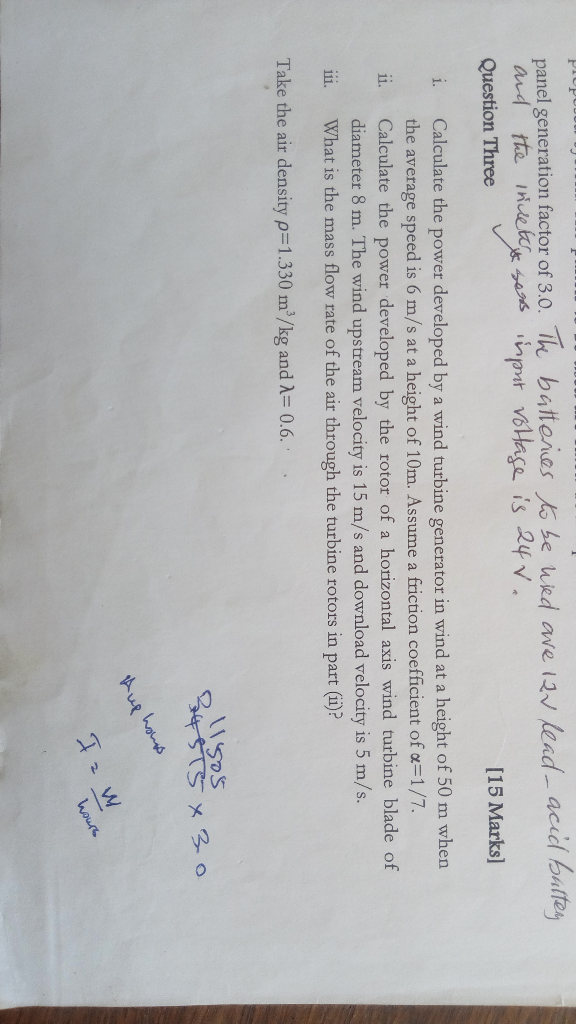 panel generation factor of 3.0. The batteries to be used are 12V lead-acid battery
and the input voltage is 24V.
Question Three [15 Marks]
i. Calculate the power developed by a wind turbine generator in wind at a height of 50 m when
the average speed is 6 m/s at a height of 10m. Assume a friction coefficient of α=1/7.
ii. Calculate the power developed by the rotor of a horizontal axis wind turbine blade of
diameter 8 m. The wind upstream velocity is 15 m/s and download velocity is 5 m/s.
iii. What is the mass flow rate of the air through the turbine rotors in part (ii)?
Take the air density ρ=1.330 m³/kg and λ= 0.6.
11505
x 30
hours
I = W
hours